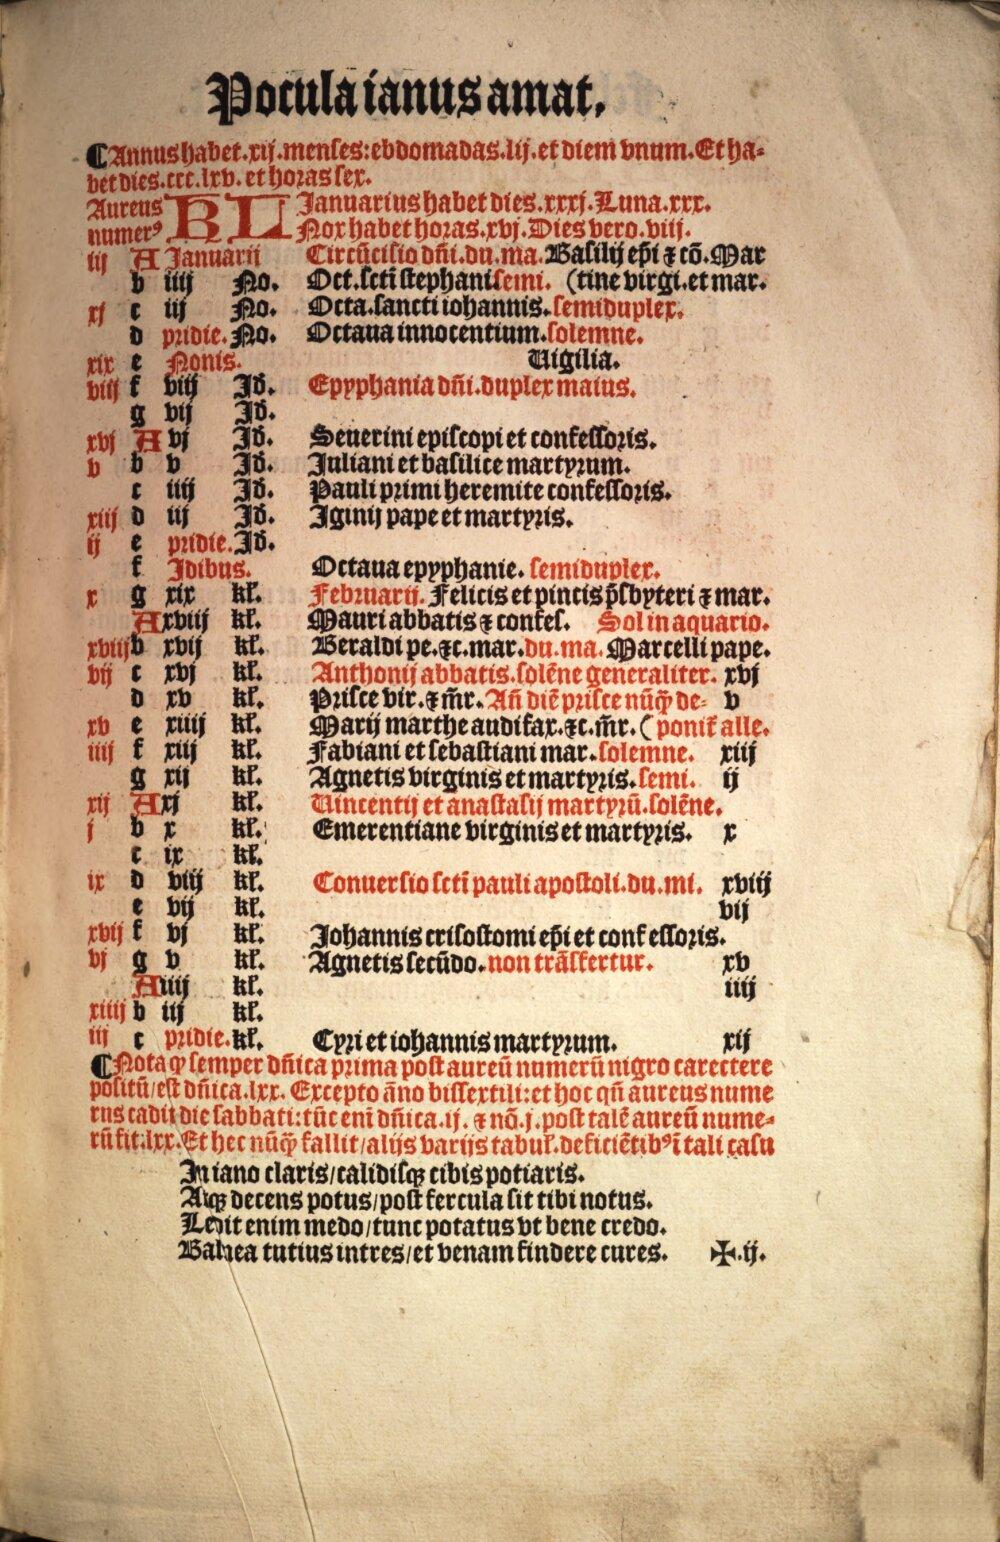 Pocula ianus amat.
¶Annus habet.xij.menses:ebdomadas.lij.et diem vnum.Et ha-
bet dies.ccc.lxv. et horas sex.
Aureus KL Januarius habet dies.xxxj.Luna.xxx.
numerꝰ Nox habet horas.xvj.Dies vero.viij.
iij A Januarii Circūcisio dñi.du.ma.Basilij ep̄i ⁊ cō.Mar
b iiij No. Oct.scti stephani semi. (tine virgi.et mar.
xj c iij No. Octa.sancti iohannis.semiduplex.
d pridie.No. Octaua innocentium.solemne.
xix e Nonis. Uigilia.
viij f viij Jd. Epyphania dñi.duplex maius.
g vij Jd.
xvj A vj Jd. Seuerini episcopi et confessoris.
v b v Jd. Juliani et basilice martyrum.
c iiij Jd. Pauli primi heremite confessoris.
xiij d iij Jd. Iginij pape et martyris.
ij e pridie.Jd.
f Jdibus. Octaua epyphanie. semiduplex.
x g xix kl. Februarii. Felicis et pincis p̄sbyteri ⁊ mar.
A xviij kl. Mauri abbatis ⁊ confes. Sol in aquario.
xviij b xvij kl. Beraldi pe.⁊c.mar.du.ma.Marcelli pape.
vij c xvj kl. Anthonij abbatis.solēne generaliter. xvj
d xv kl. Prisce vir.⁊ m̄r.Añ diē prisce nūq̄ de- v
xv e xiiij kl. Marij marthe audifax.⁊c.m̄r.( ponit̄ alle.
iiij f xiij kl. Fabiani et sebastiani mar.solemne. xiij
g xij kl. Agnetis virginis et martyris.semi. ij
xij A xj kl. Uincentij et anastasij martyrū.solēne.
j b x kl. Emerentiane virginis et martyris. x
c ix kl.
ix d viij kl. Conuersio scti pauli apostoli.du.mi. xviij
e vij kl. vij
xvij f vj kl. Johannis crisostomi ep̄i et confessoris.
vj g v kl. Agnetis secūdo.non trāsfertur. xv
A iiij kl. iiij
xiiij b iij kl.
iij c pridie.kl. Cyri et iohannis martyrum. xij
¶Nota qꝫ semper dñica prima post aureū numerū nigro carectere
positū/est dñica.lxx. Excepto āno bissextili:et hoc qñ aureus nume
rus cadit die sabbati:tūc eni dñica.ij. ⁊ nō.j.post talē aureū nume-
rū fit.lxx.Et hec nūq̄ fallit/alijs varijs tabul.deficiētibꝰ ī tali casu
In iano claris/calidisqꝫ cibis potiaris.
Atqꝫ decens potus/post fercula sit tibi notus.
Ledit enim medo/tunc potatus vt bene credo.
Balnea tutius intres/et venam findere cures. ✠.ij.